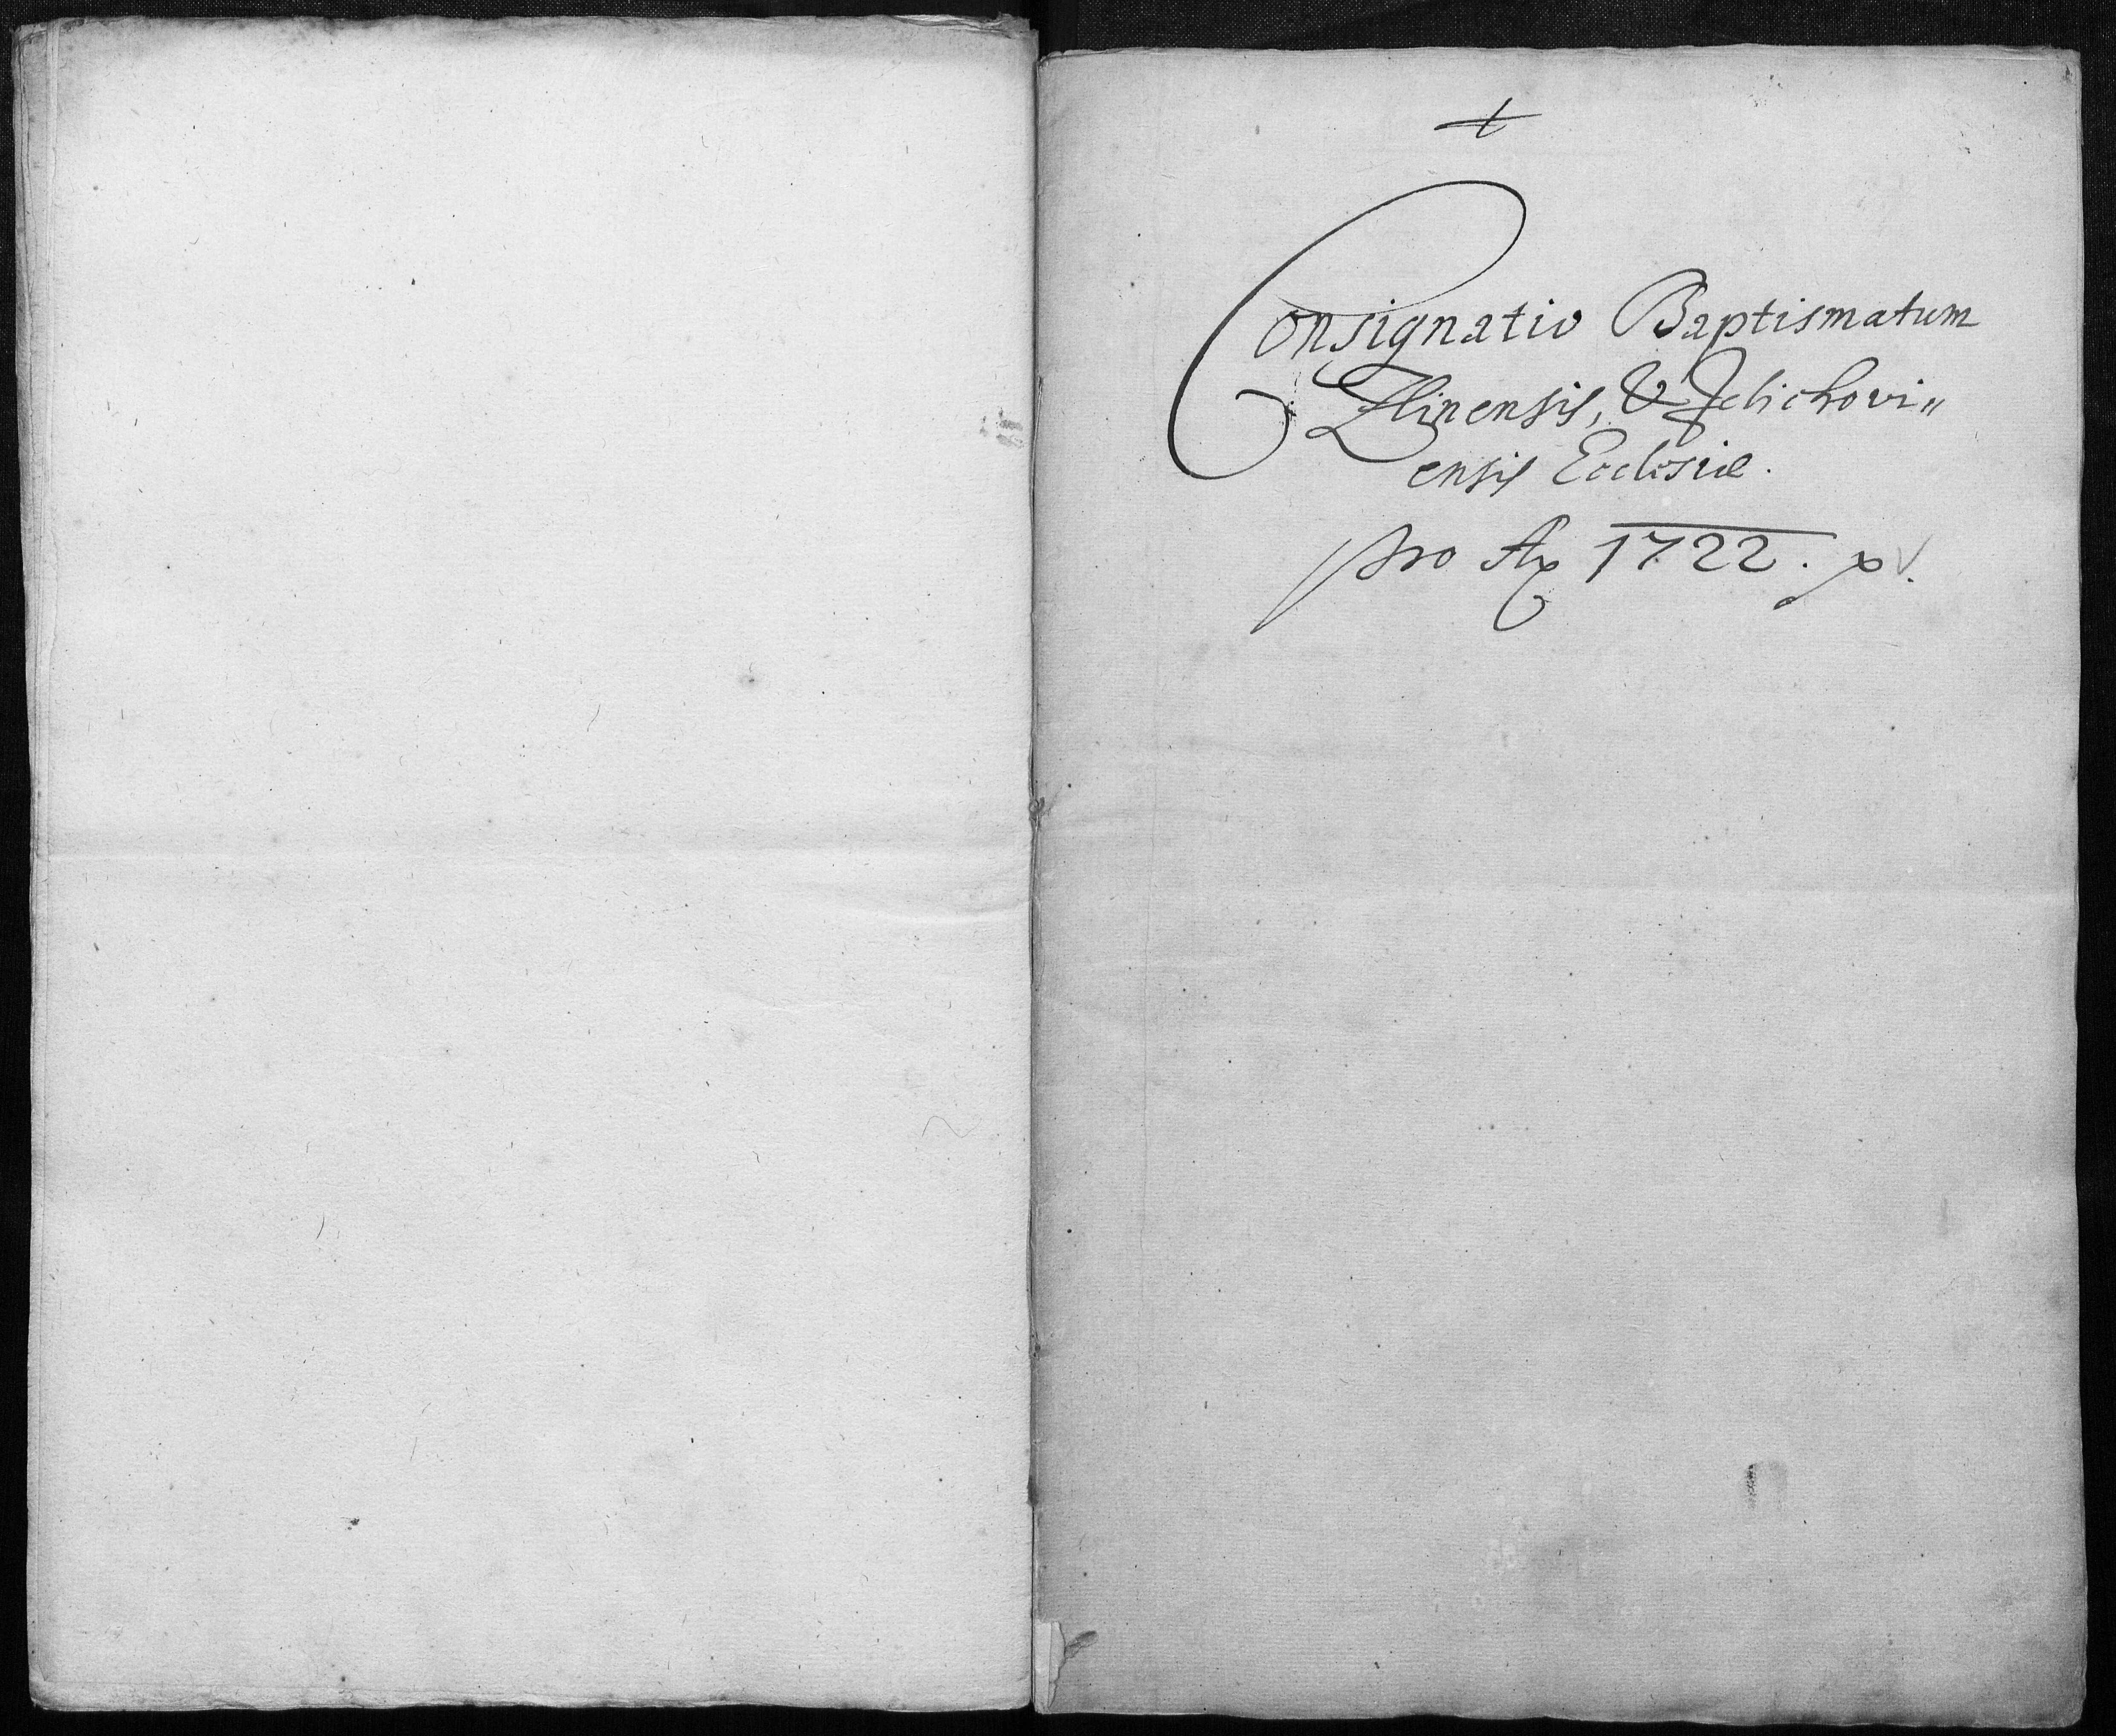 Consignatio Baptismatum
Zlinensis, & Jelichovi„
ensis Ecclesiæ.
pro Ao 1722.